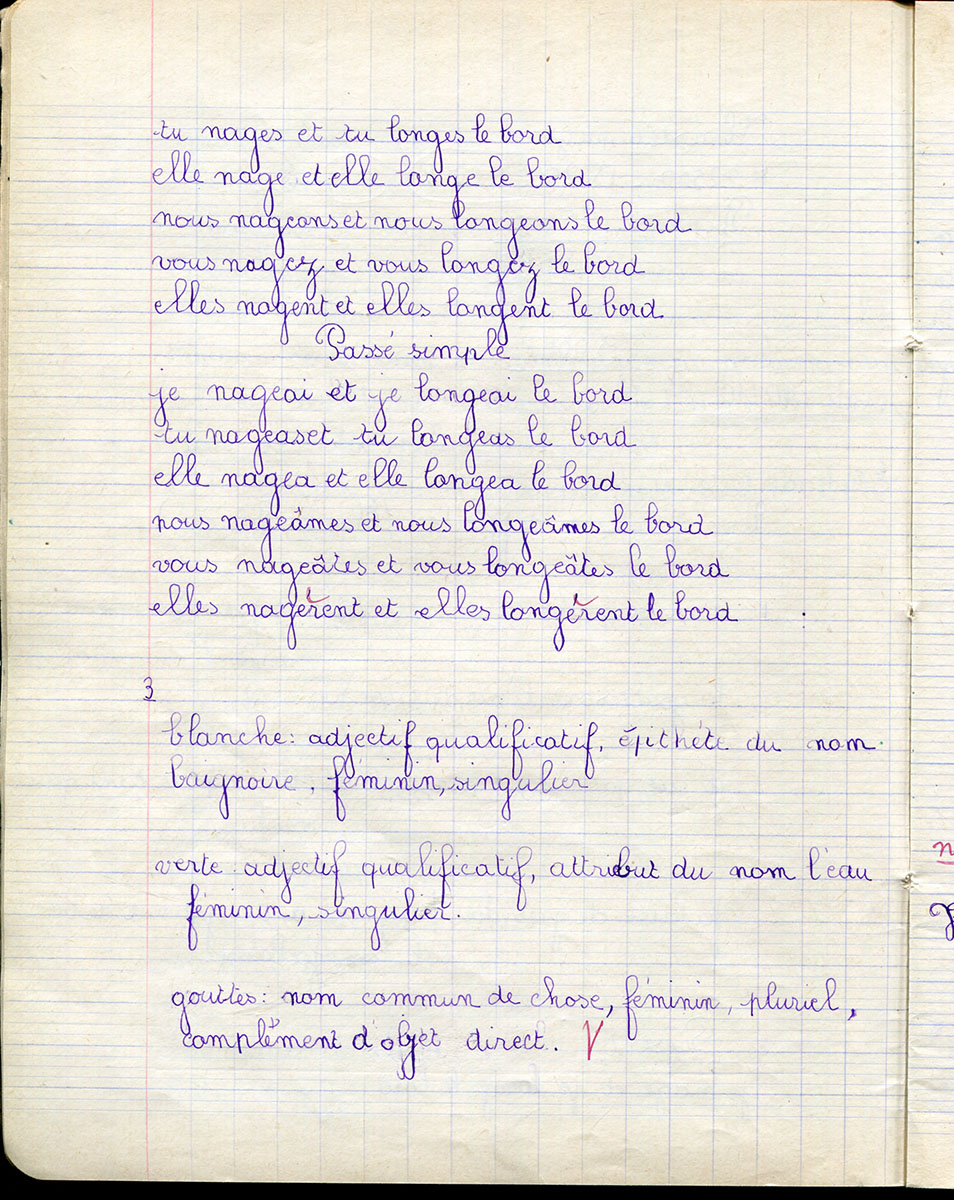 tu nages et tu longes le bord
elle nage et elle longe le bord
nous nageons et nous longeons le bord
vous nagez et vous longez le bord
elles nagent et elles longent le bord
Passé simple
je nageai et je longeai le bord
tu nageas et tu longeas le bord
elle nagea et elle longea le bord
nous nageâmes et nous longeâmes le bord
vous nageâtes et vous longeâtes le bord
elles nagèrent et elles longèrent le bord
3
blanche : adjectif qualificatif, épithète du nom
baignoire, féminin, singulier
verte : adjectif qualificatif, attribut du nom l'eau
féminin, singulier.
gouttes : nom commun de chose, féminin, pluriel,
complément d'objet direct. V